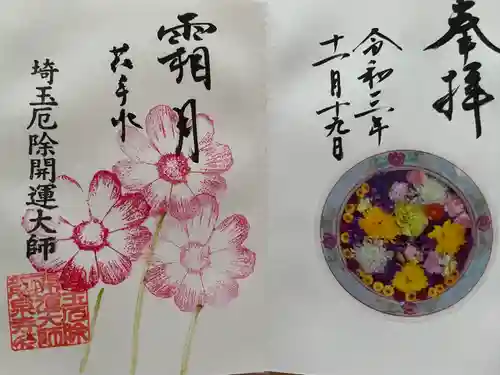 奉拝
令和三年
十一月十九日
霜月
花手水
埼玉厄除開運大師